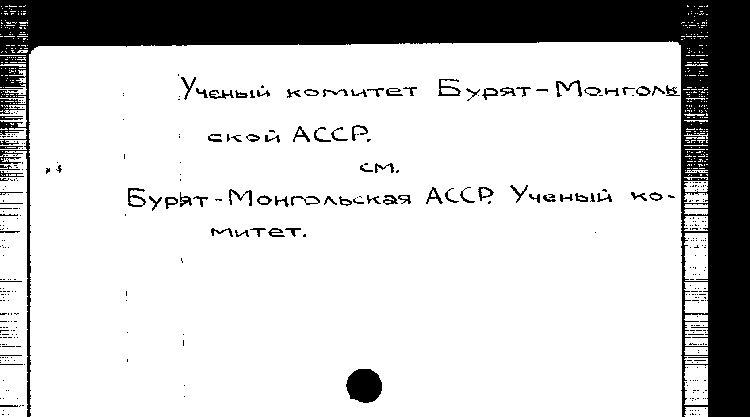 Ученый комитет Бурят-Монголь
ской АССР.
см.
Бурят-Монгольская АССР. Ученый ко-
митет.